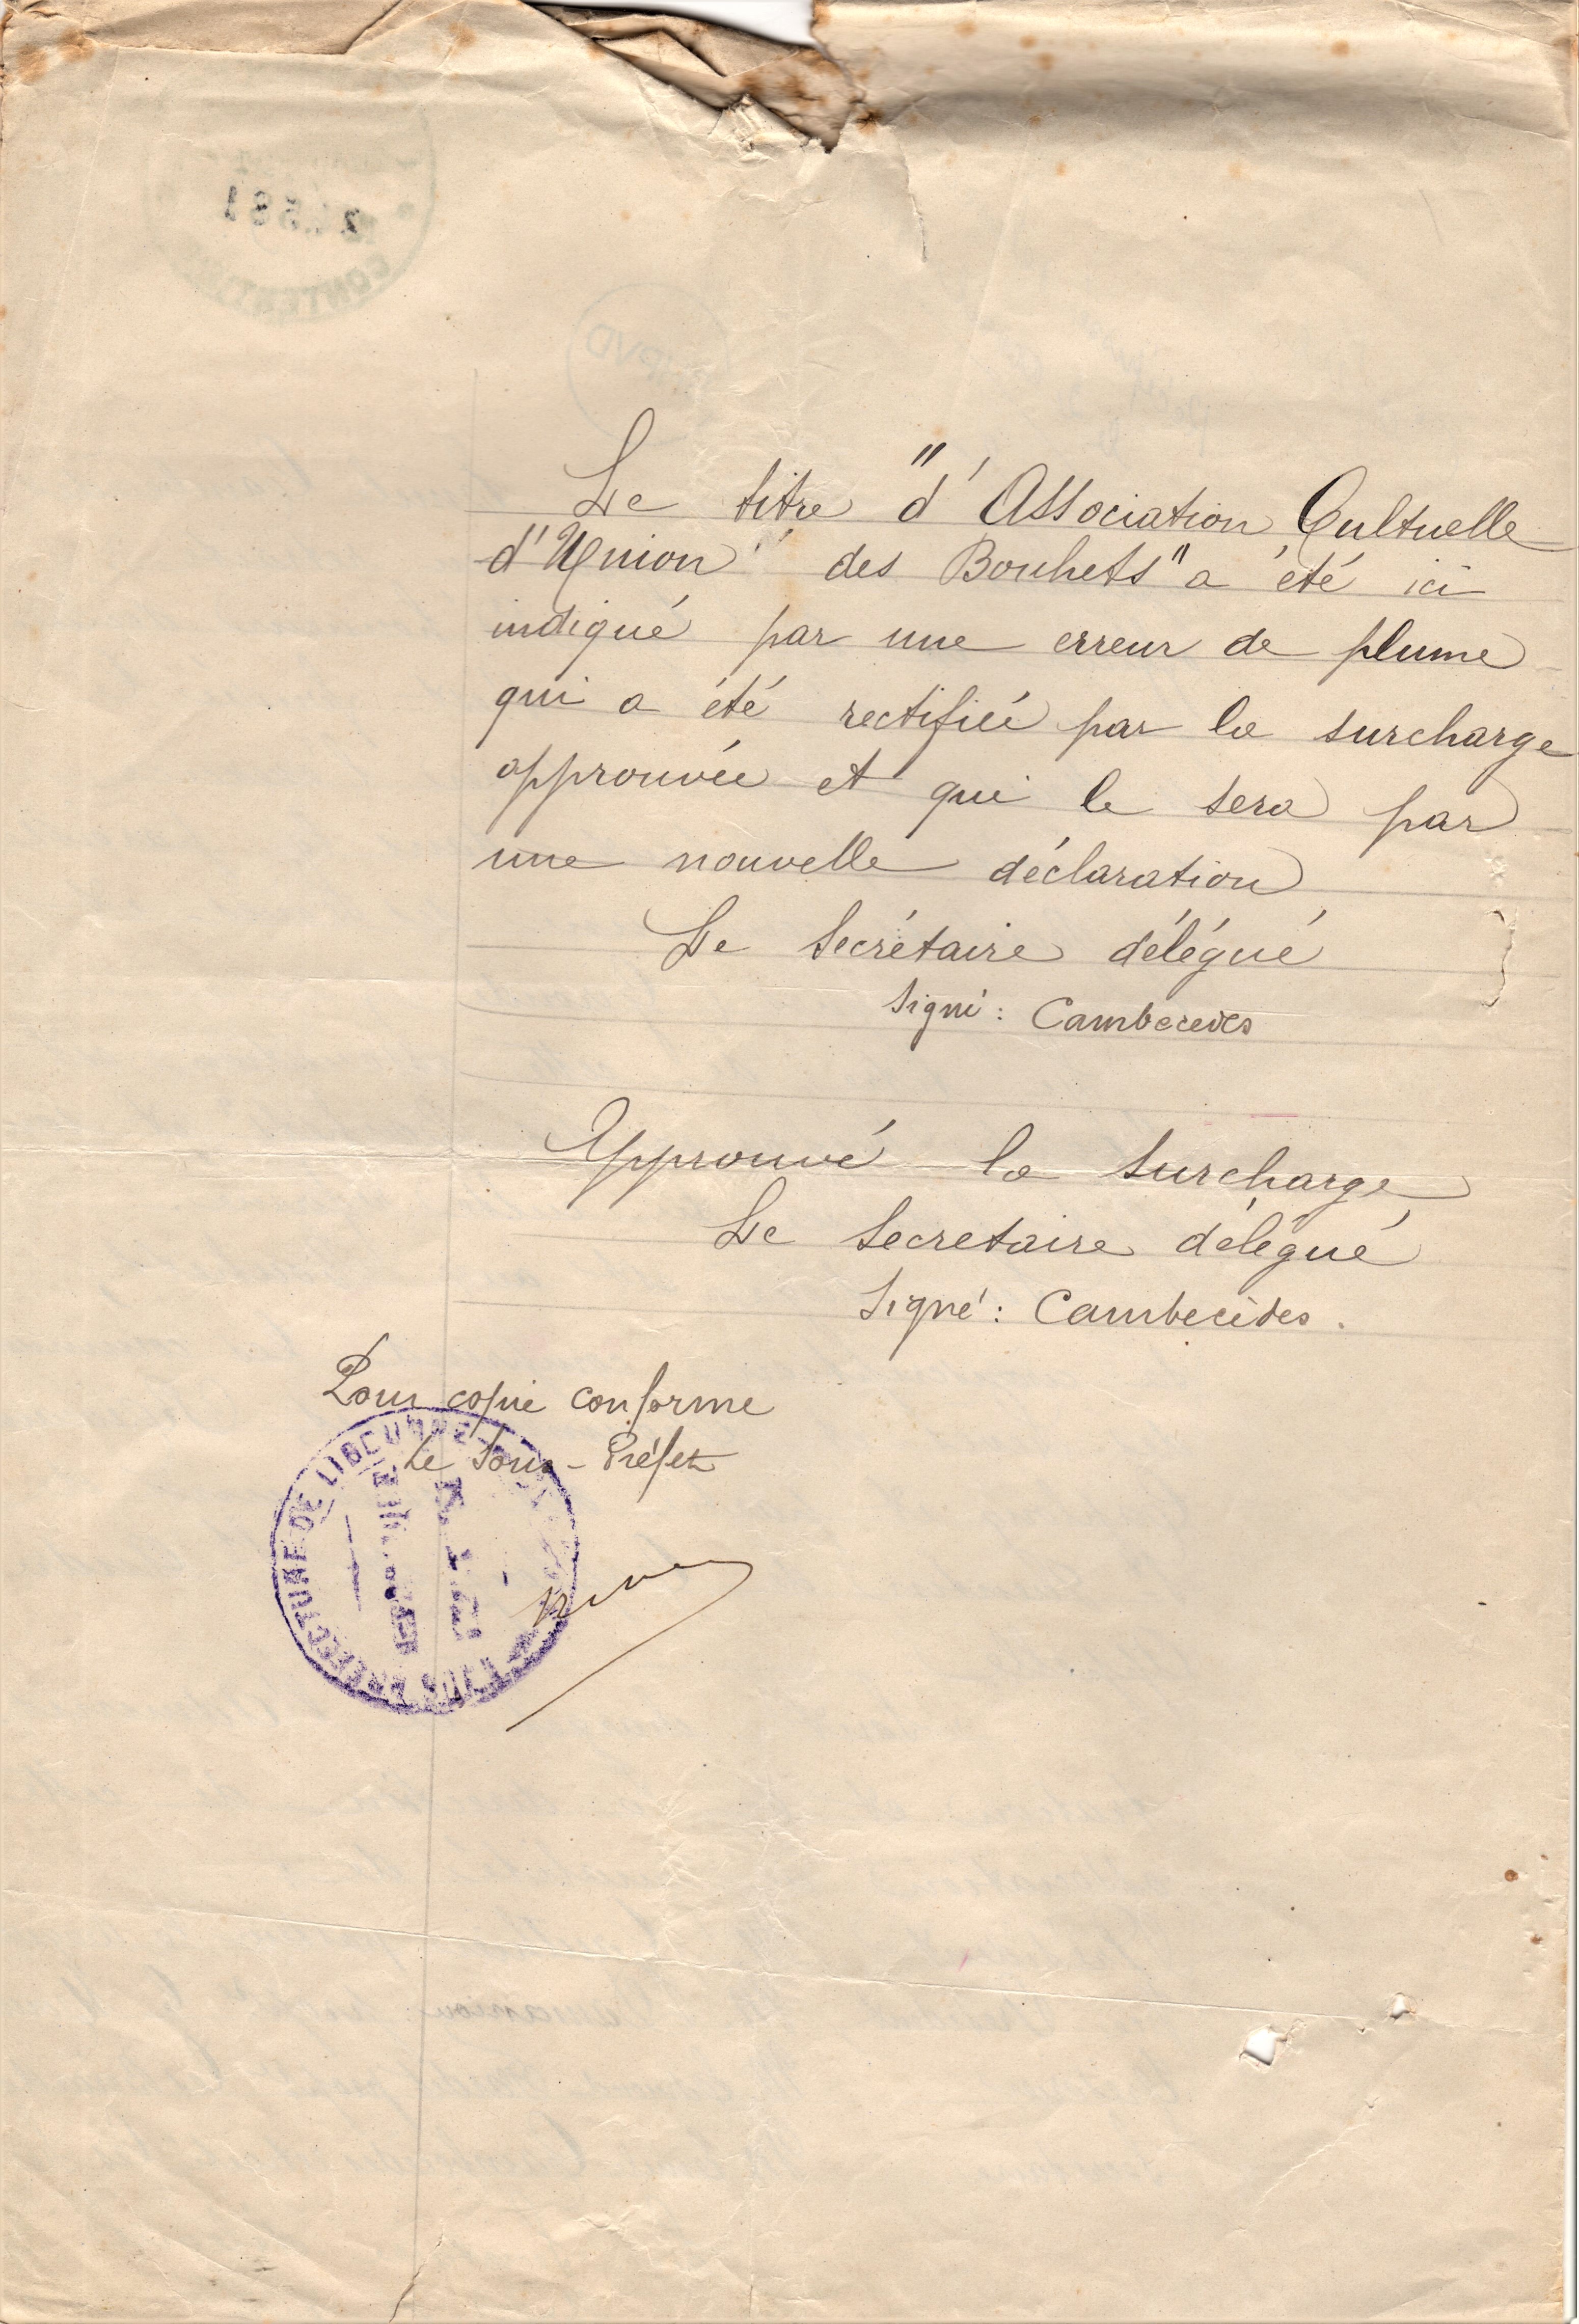 Le titre "d'Association Cultuelle
d'Union" des Bouhets" a été ici
indiqué par une erreur de plume
qui a été rectifiée par la surcharge
approuvée et qui le sera par
une nouvelle déclaration
Le Secrétaire délégué
Signé : Cambecèdes
Approuvé la surcharge
Le Secretaire délégué
Signé : Cambecèdes.
Pour copie conforme
Le Sous-Préfet
SOUS PREFECTURE DE LIBOURNE